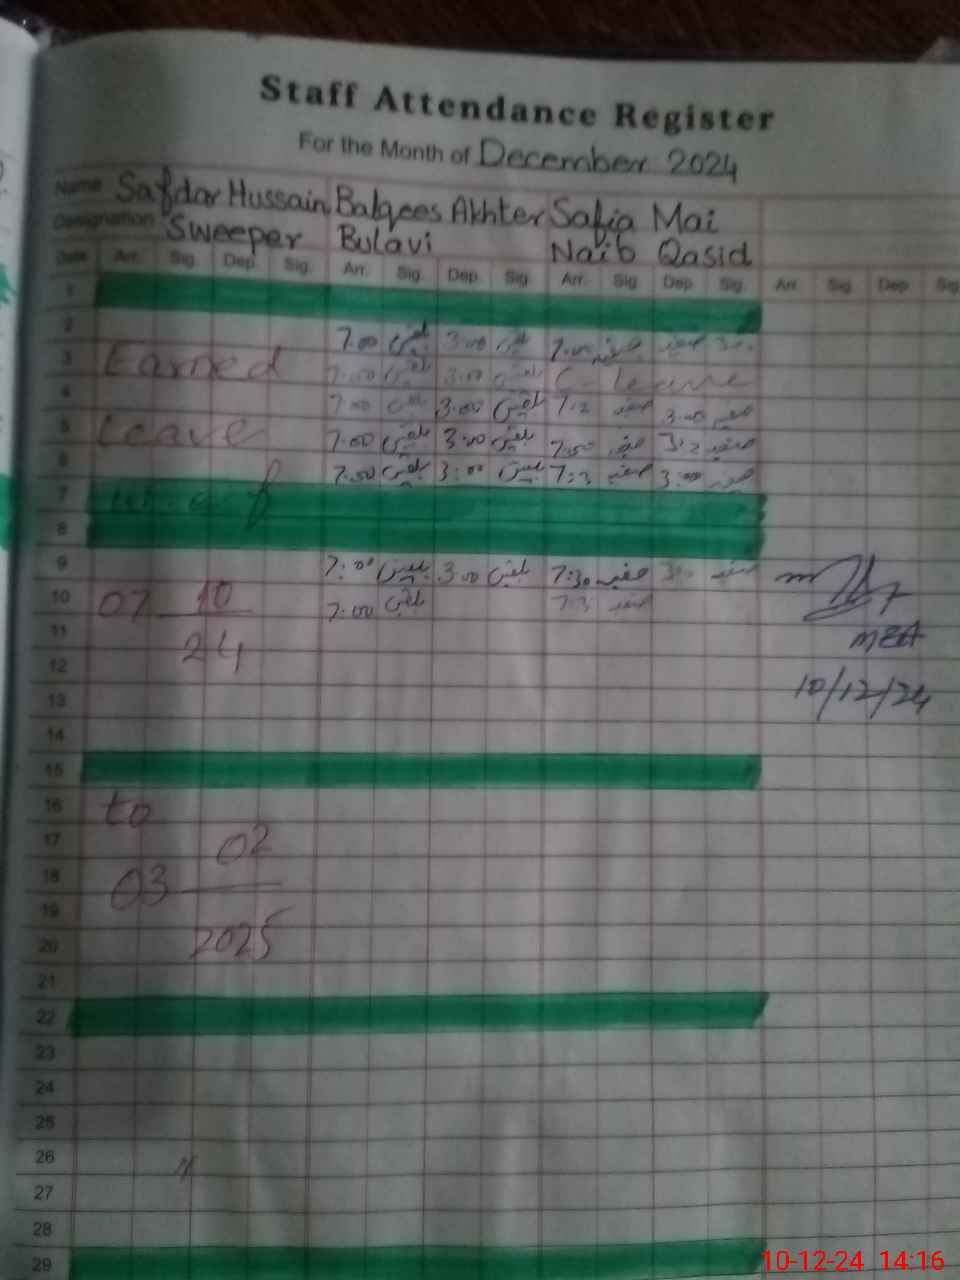 Staff Attendance Register
For the Month of December 2024
Name Safdar Hussain Balqees Akhter Safia Mai
Designation Sweeper Bulavi Naib Qasid
Date Arr. Sig. Dep. Sig. Arr. Sig. Dep. Sig. Arr. Sig. Dep. Sig. Arr. Sig. Dep. Sig.
1
2 7.00 بلقیس 3.00 بلقیس 7.00 صفیہ صفیہ
3 Earned 7.00 بلقیس 3.00 بلقیس C-leave
4 7.00 بلقیس 3.00 بلقیس صفیہ 3.00 صفیہ
5 Leave 7.00 بلقیس 3.00 بلقیس صفیہ صفیہ
6 7.00 بلقیس 3:00 بلقیس صفیہ 3:00 صفیہ
7
8
9 7:00 بلقیس 3.00 بلقیس 7:30 صفیہ صفیہ
10 07 10 7.00 بلقیس 7.3 صفیہ
11 24 MEA
12
13 10/12/24
14
15
16 to
17 02
18 03
19
20 2025
21
22
23
24
25
26
27
28
29
10-12-24 14:16